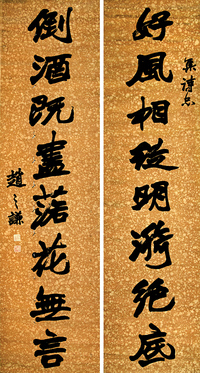 集詩品
好風相從明漪絶底
倒酒既盡落花無言
趙之謙